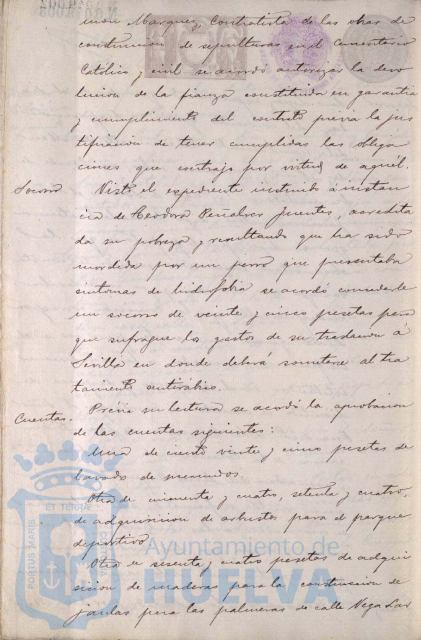 món Marquez, Contratista de las obras de
construccion de sepulturas en el Cementerio
Católico y civil se acordó autorizar la devo
lucion de la fianza constituida en garantia
y cumplimiento del contrato previa la jus
tificacion de tener cumplidas las obliga
ciones que contrajo por virtud de aquél.
Socorro Visto el expediente instruido á instan
cia de Teodora Peñalver Fuentes, acredita
da su pobreza y resultando que ha sido
mordida por un perro que presentaba
sintomas de hidrofobia se acordó concederle
un socorro de veinte y cinco pesetas para
que sufrague los gastos de su traslacion á
Sevilla en donde deberá someterse al tra
tamiento antirrábico.
Cuentas. Prévia su lectura se acordó la aprobacion
de las cuentas siguientes:
Una de ciento veinte y cinco pesetas de
lavado de menudos.
Otra de cincuenta y cuatro, setenta y cuatro,
de adquisicion de arbustos para el parque
deportivo.
Otra de sesenta y cuatro pesetas de adqui
sicion de maderas para la construccion de
jaulas para las palmeras de calle Vega Lar
PORTUS MARIS
ET TERRAE
Ayuntamiento de
HUELVA